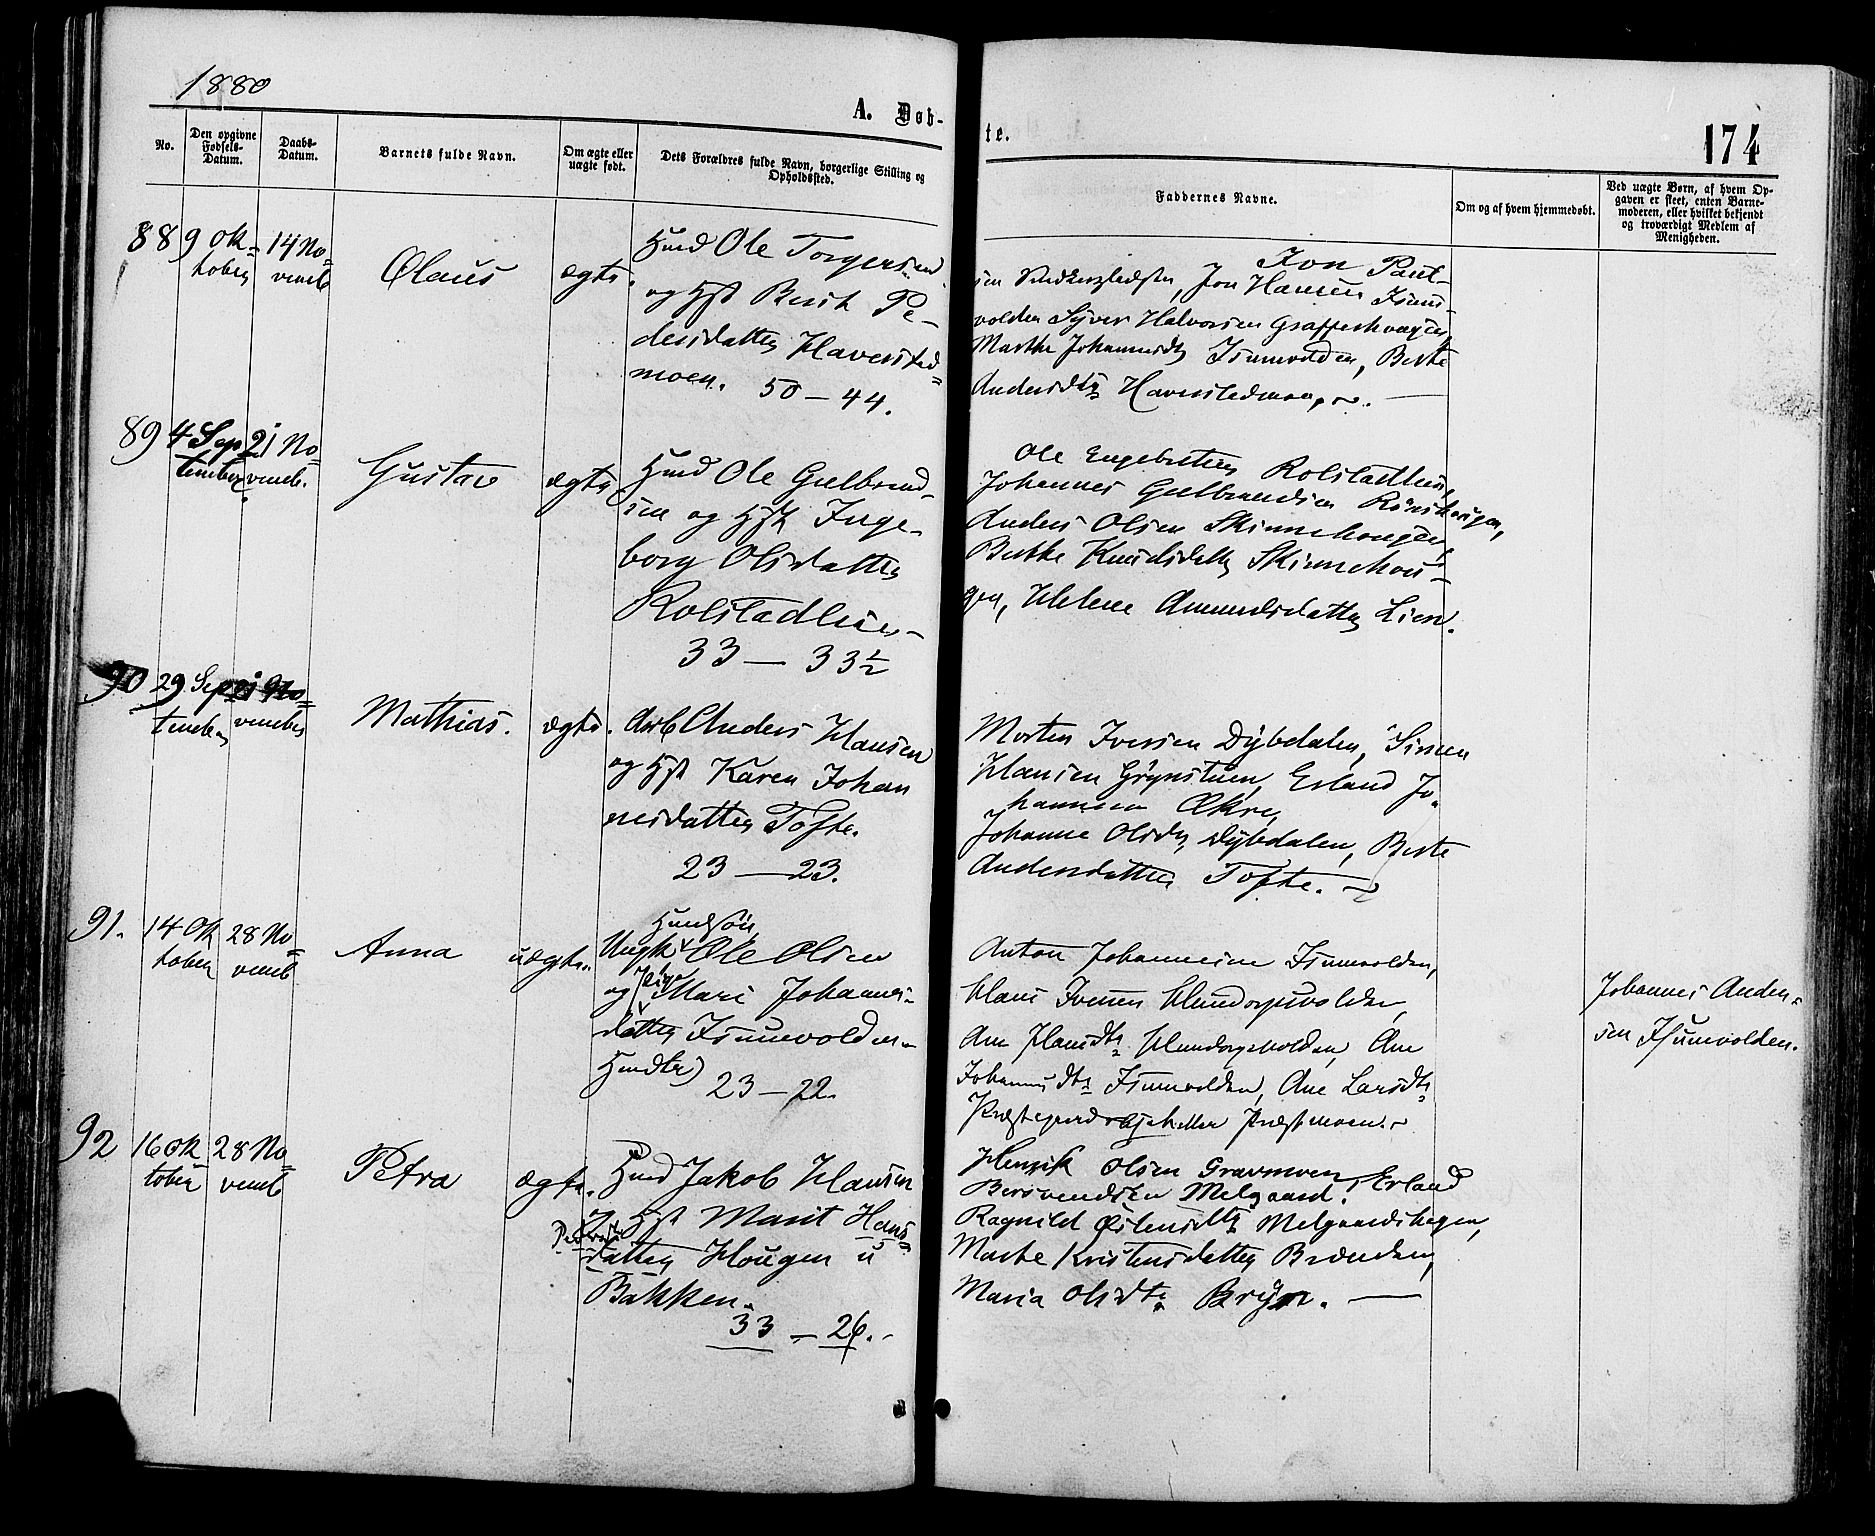 1880
A. Døb-
te.
174
No.
Den opgivne
Fødsels-
Datum.
Daabs-
Datum.
Barnets fulde Navn.
Om ægte eller
uægte født.
Dets Forældres fulde Navn, borgerlige Stilling og
Opholdssted.
Faddernes Navne.
Om og af hvem hjemmedøbt.
Ved uægte Børn, af hvem Op-
gaven er skeet, enten Barne-
moderen, eller hvilket bekjendt
og troværdigt Medlem af
Menigheden.
88
9 Ok-
tober
14 No-
vemb
Olaus
ægte.
Husmd Ole Torgersen
og Hst Berit Pe-
dersdatter Haverstad-
moen. 50 – 44.
Jon Paul-
sen, Jon Hansen
volden Syver Halvorsen
Marthe Johannesdtr, Berte
Andersdtr Haverstadmoen.
89
4 Sep
tember
21 No-
vemb.
Gustav
ægte
Husmd Ole Gulbrand-
sen og Hst Inge-
borg Olsdatter
Rolstadlien
33 – 33½
Ole Engebretsen Rolstadlien,
Johannes Gulbrandsen
Anders Olsen Skinnehougen,
Berthe Knudsdatter Skinnehou-
gen, Helene Amundsdatter Lien.
90
29 Sep
tember
21 No-
vember
Mathias.
ægte.
Arb Anders Hansen
og Hst Karen Johan
nesdatter Tofte.
23 – 23.
Morten Iversen Dybdalen, Simen
Hansen, Erland Jo-
hannesen Økre,
Johanne Olsdtr Dybdalen, Berte
Andersdatter Tofte.
91.
14 Ok
tober
28 No-
vemb
Anna
uægte.
Husmdsøn
Ungk Ole Olsen
og Pige Mari Johannes-
datter Isumvolden
23 – 22.
Anton Johannesen Isumvolden,
Hans Iversen Hundorpvolden,
Ane Hansdtr Hundorpvolden, Ane
Johannesdtr Isumvolden, Ane Larsdtr
Præstmoen.
Johannes Ander-
sen Isumvolden.
92
16 Ok
tober
28 No-
vemb
Petra
ægte.
Husmd Jakob Hansen
og Hst Marit Hans-
datter Hougen u
Bakken.
33 – 26.
Henrik Olsen Gravmoen, Erland
Bersvendsen Melgaard,
Ragnild Østensdtr Melgaardshagen,
Marte Kristensdatter Brænden,
Maria Olsdtr Bryn.